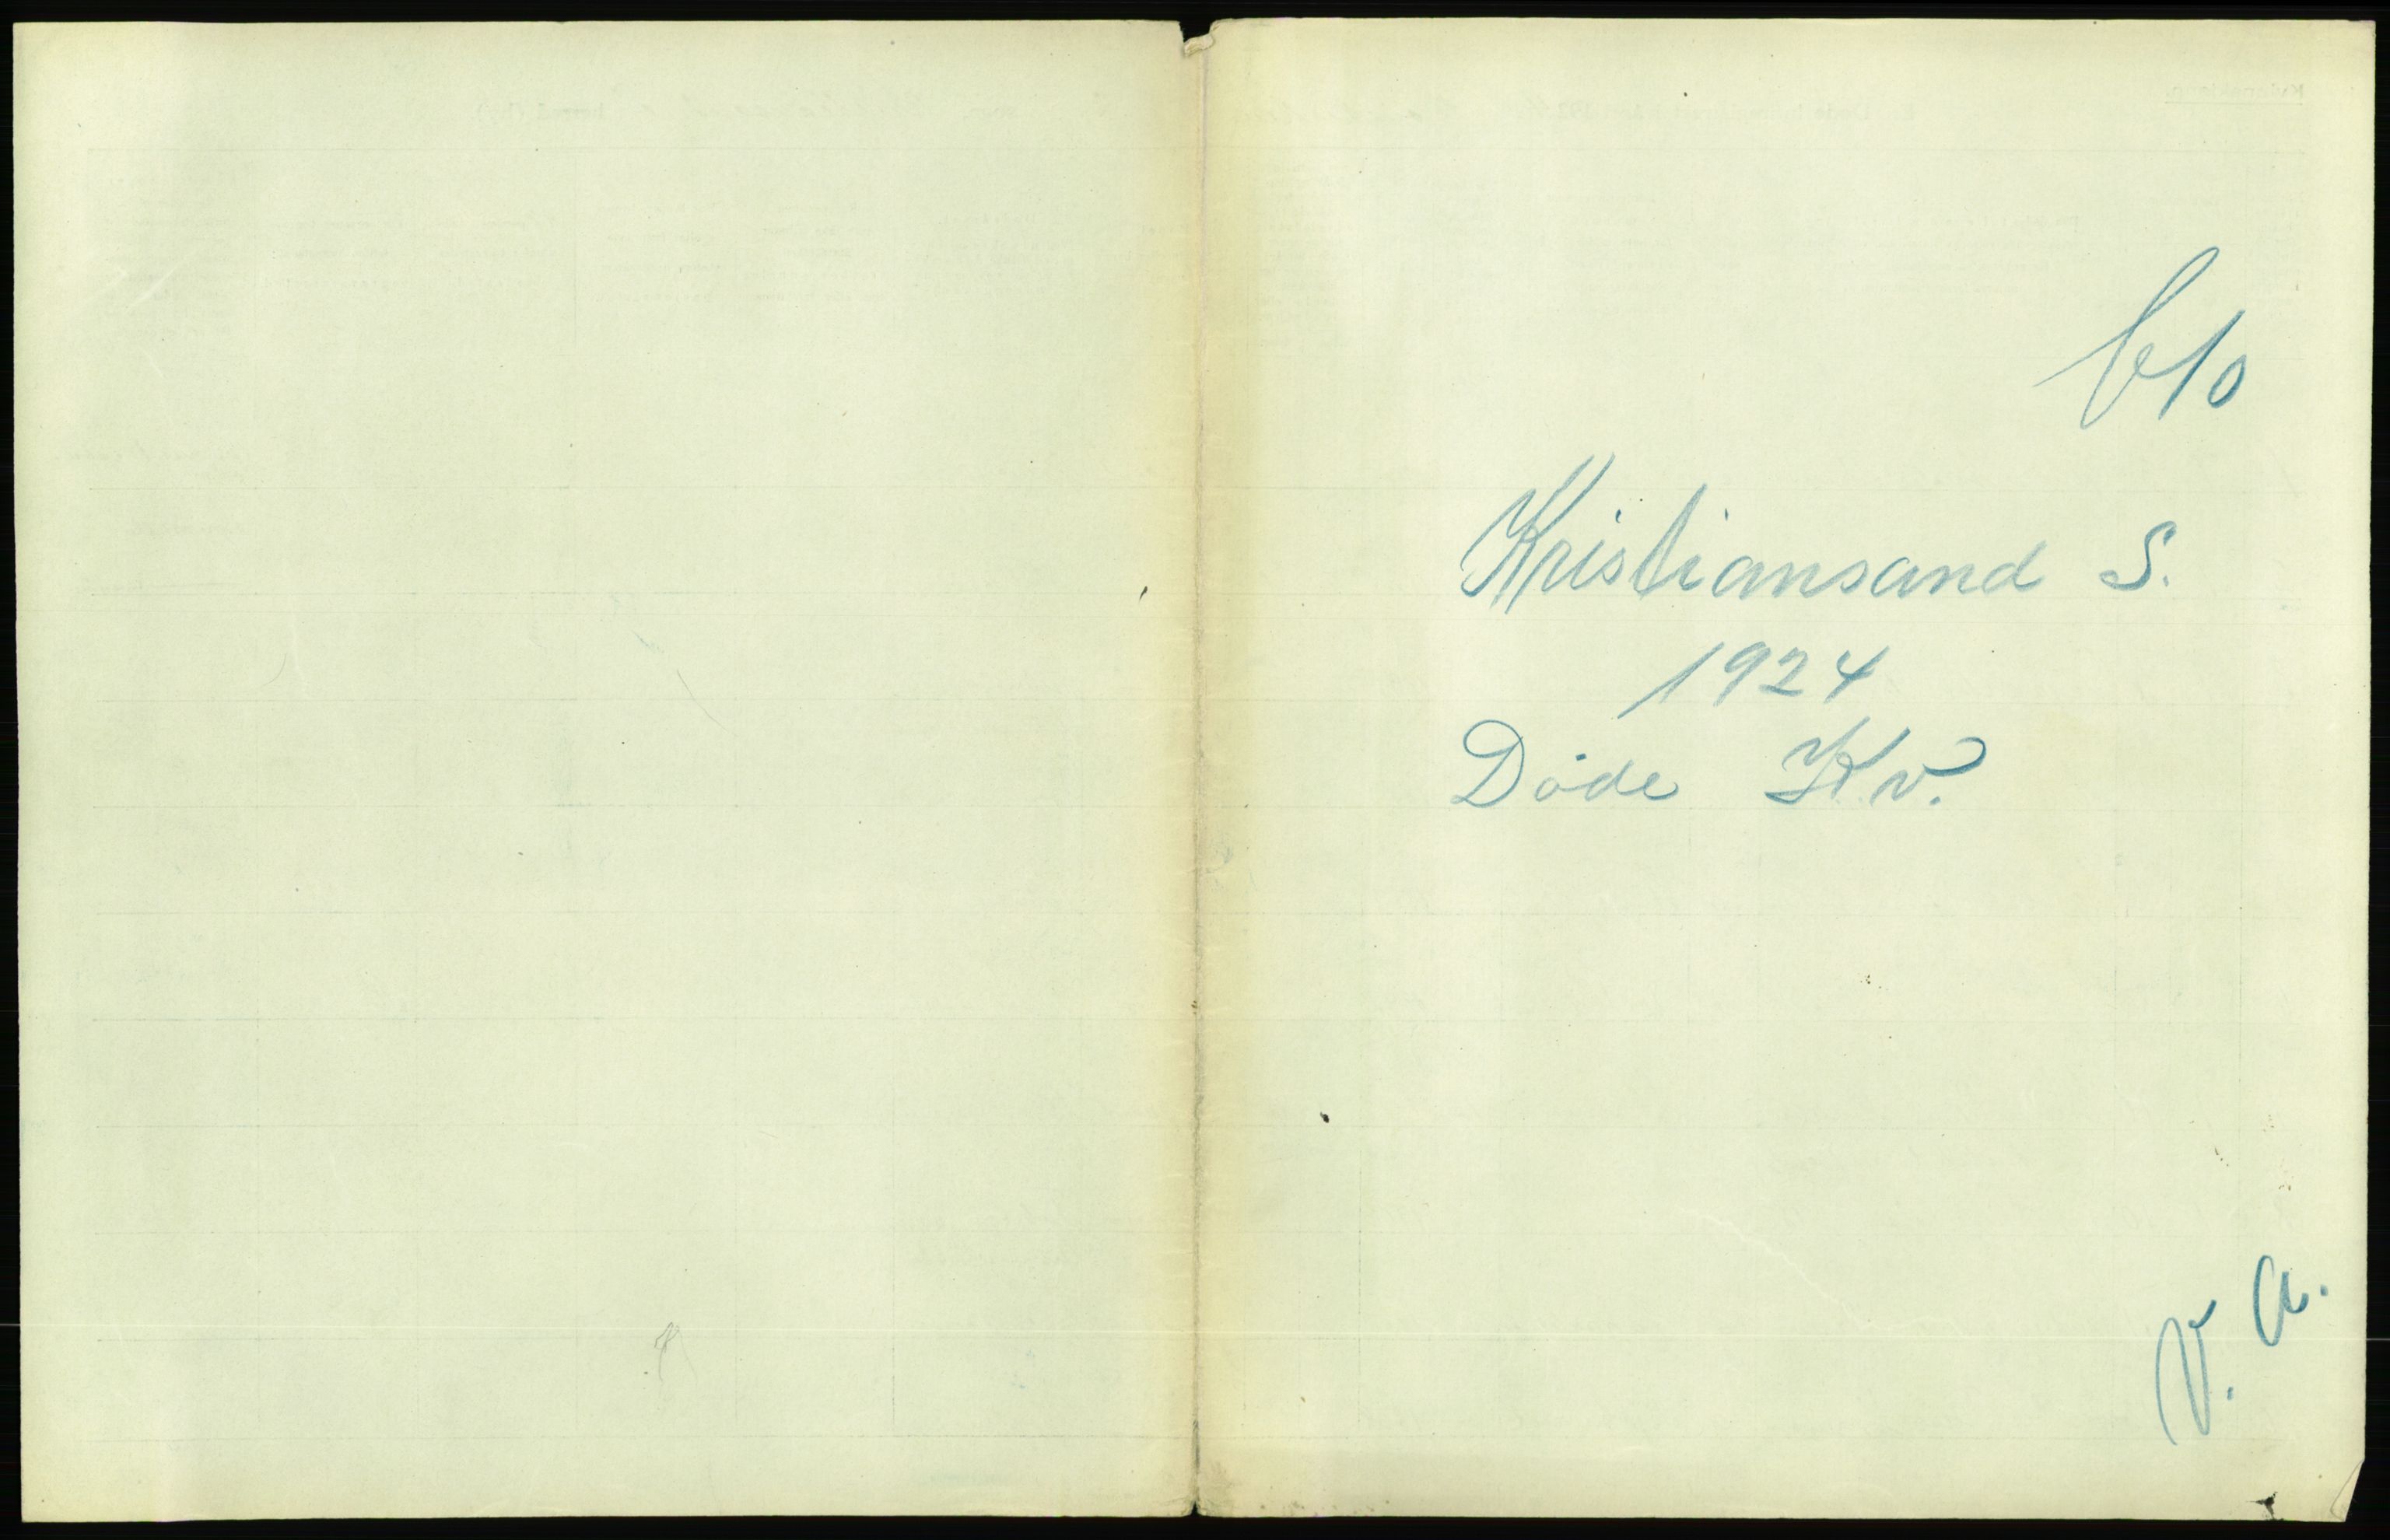 b10
Kristiansand S.
1924
Døde Kv.
V. a.